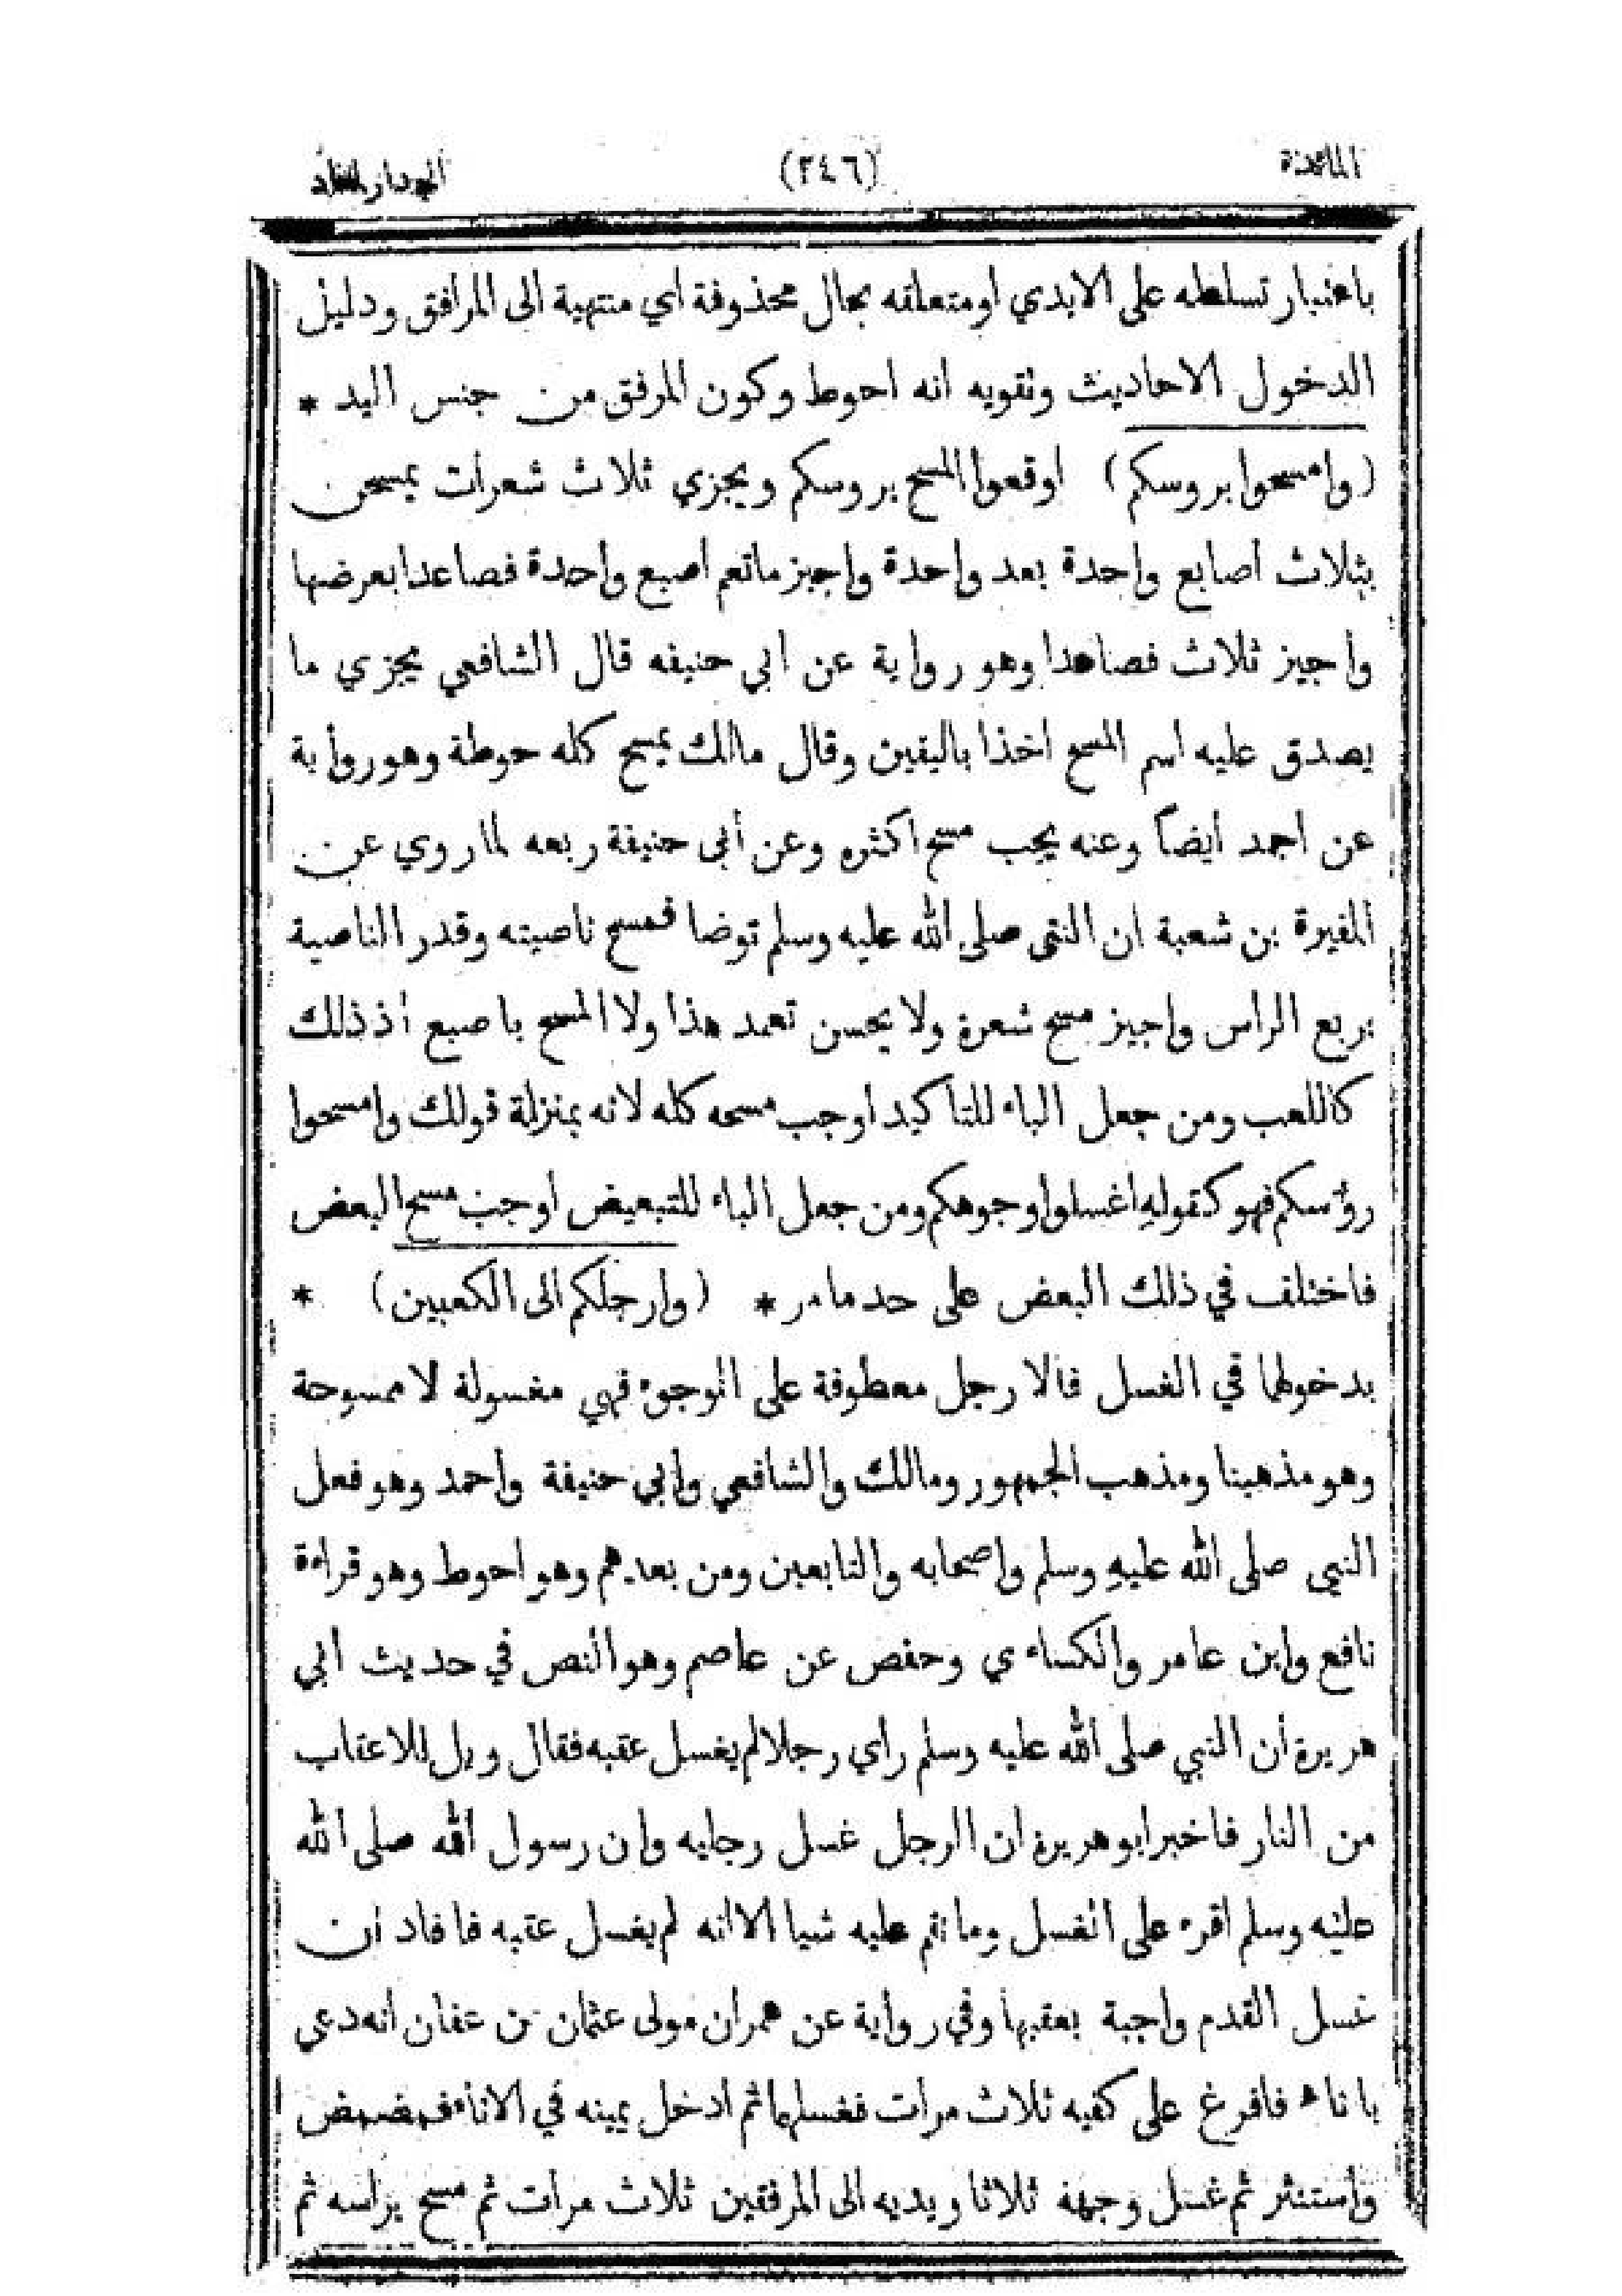 المائدة (٣٤٦)
باعتبار تسلطه على الايدي او متعلقه بحال محذوفة اي منتهية الى المرافق ودليل
الدخول الاحاديث وتقويه انه احوط وكون المرفق من جنس اليد *
(وامسحوا بروسكم) اوقعوا المسح بروسكم ويجزي ثلاث شعرات يمسحن
بثلاث اصابع واحدة بعد واحدة واجيز ما تعم اصبع واحدة فصاعدا بعرضها
واجيز ثلاث فصاعدا وهو رواية عن ابي حنيفه قال الشافعي يجزي ما
يصدق عليه اسم المسح اخذا باليقين وقال مالك يمسح كله حوطة وهو رواية
عن احمد ايضاً وعنه يجب مسح اكثره وعن أبى حنيفة ربعه لما روي عن
المغيرة بن شعبة ان النبى صلى الله عليه وسلم توضا فمسح ناصيته وقدر الناصية
بربع الراس واجيز مسح شعرة ولا يحسن تعمد هذا ولا المسح باصبع أذ ذلك
كاللعب ومن جعل الباء للتاكيد اوجب مسحه كله لانه بمنزلة قولك وامسحوا
رؤسكم فهو كقولهِ اغسلوا وجوهكم ومن جعل الباء للتبعيض أوجب مسح البعض
فاختلف في ذلك البعض على حد ما مر * (وارجلكم الى الكعبين) *
بدخولها في الغسل فالارجل معطوفة على الوجوه فهي مغسولة لا ممسوحة
وهو مذهبنا ومذهب الجمهور ومالك والشافعي وابي حنيفة واحمد وهو فعل
النبي صلى الله عليهِ وسلم واصحابه والتابعين ومن بعدهم وهو احوط وهو قراءة
نافع وابن عامر والكساءي وحفص عن عاصم وهو النص في حديث ابي
هريرة أن النبي صلى الله عليه وسلم راي رجلا لم يغسل عقبه فقال ويل للاعقاب
من النار فاخبر ابو هريرة ان الرجل غسل رجليه وان رسول الله صلى الله
عليه وسلم اقره على الغسل وما نقم عليه شيا الا انه لم يغسل عقبه فافاد أن
غسل القدم واجبة بعقبها وفي رواية عن حمران مولى عثمان بن عفان أنه دعي
باناء فافرغ على كفيه ثلاث مرات فغسلهما ثم ادخل يمينه في الاناء فمضمض
وأستنثر ثم غسل وجهه ثلاثا ويديه الى المرفقين ثلاث مرات ثم مسح براسه ثم